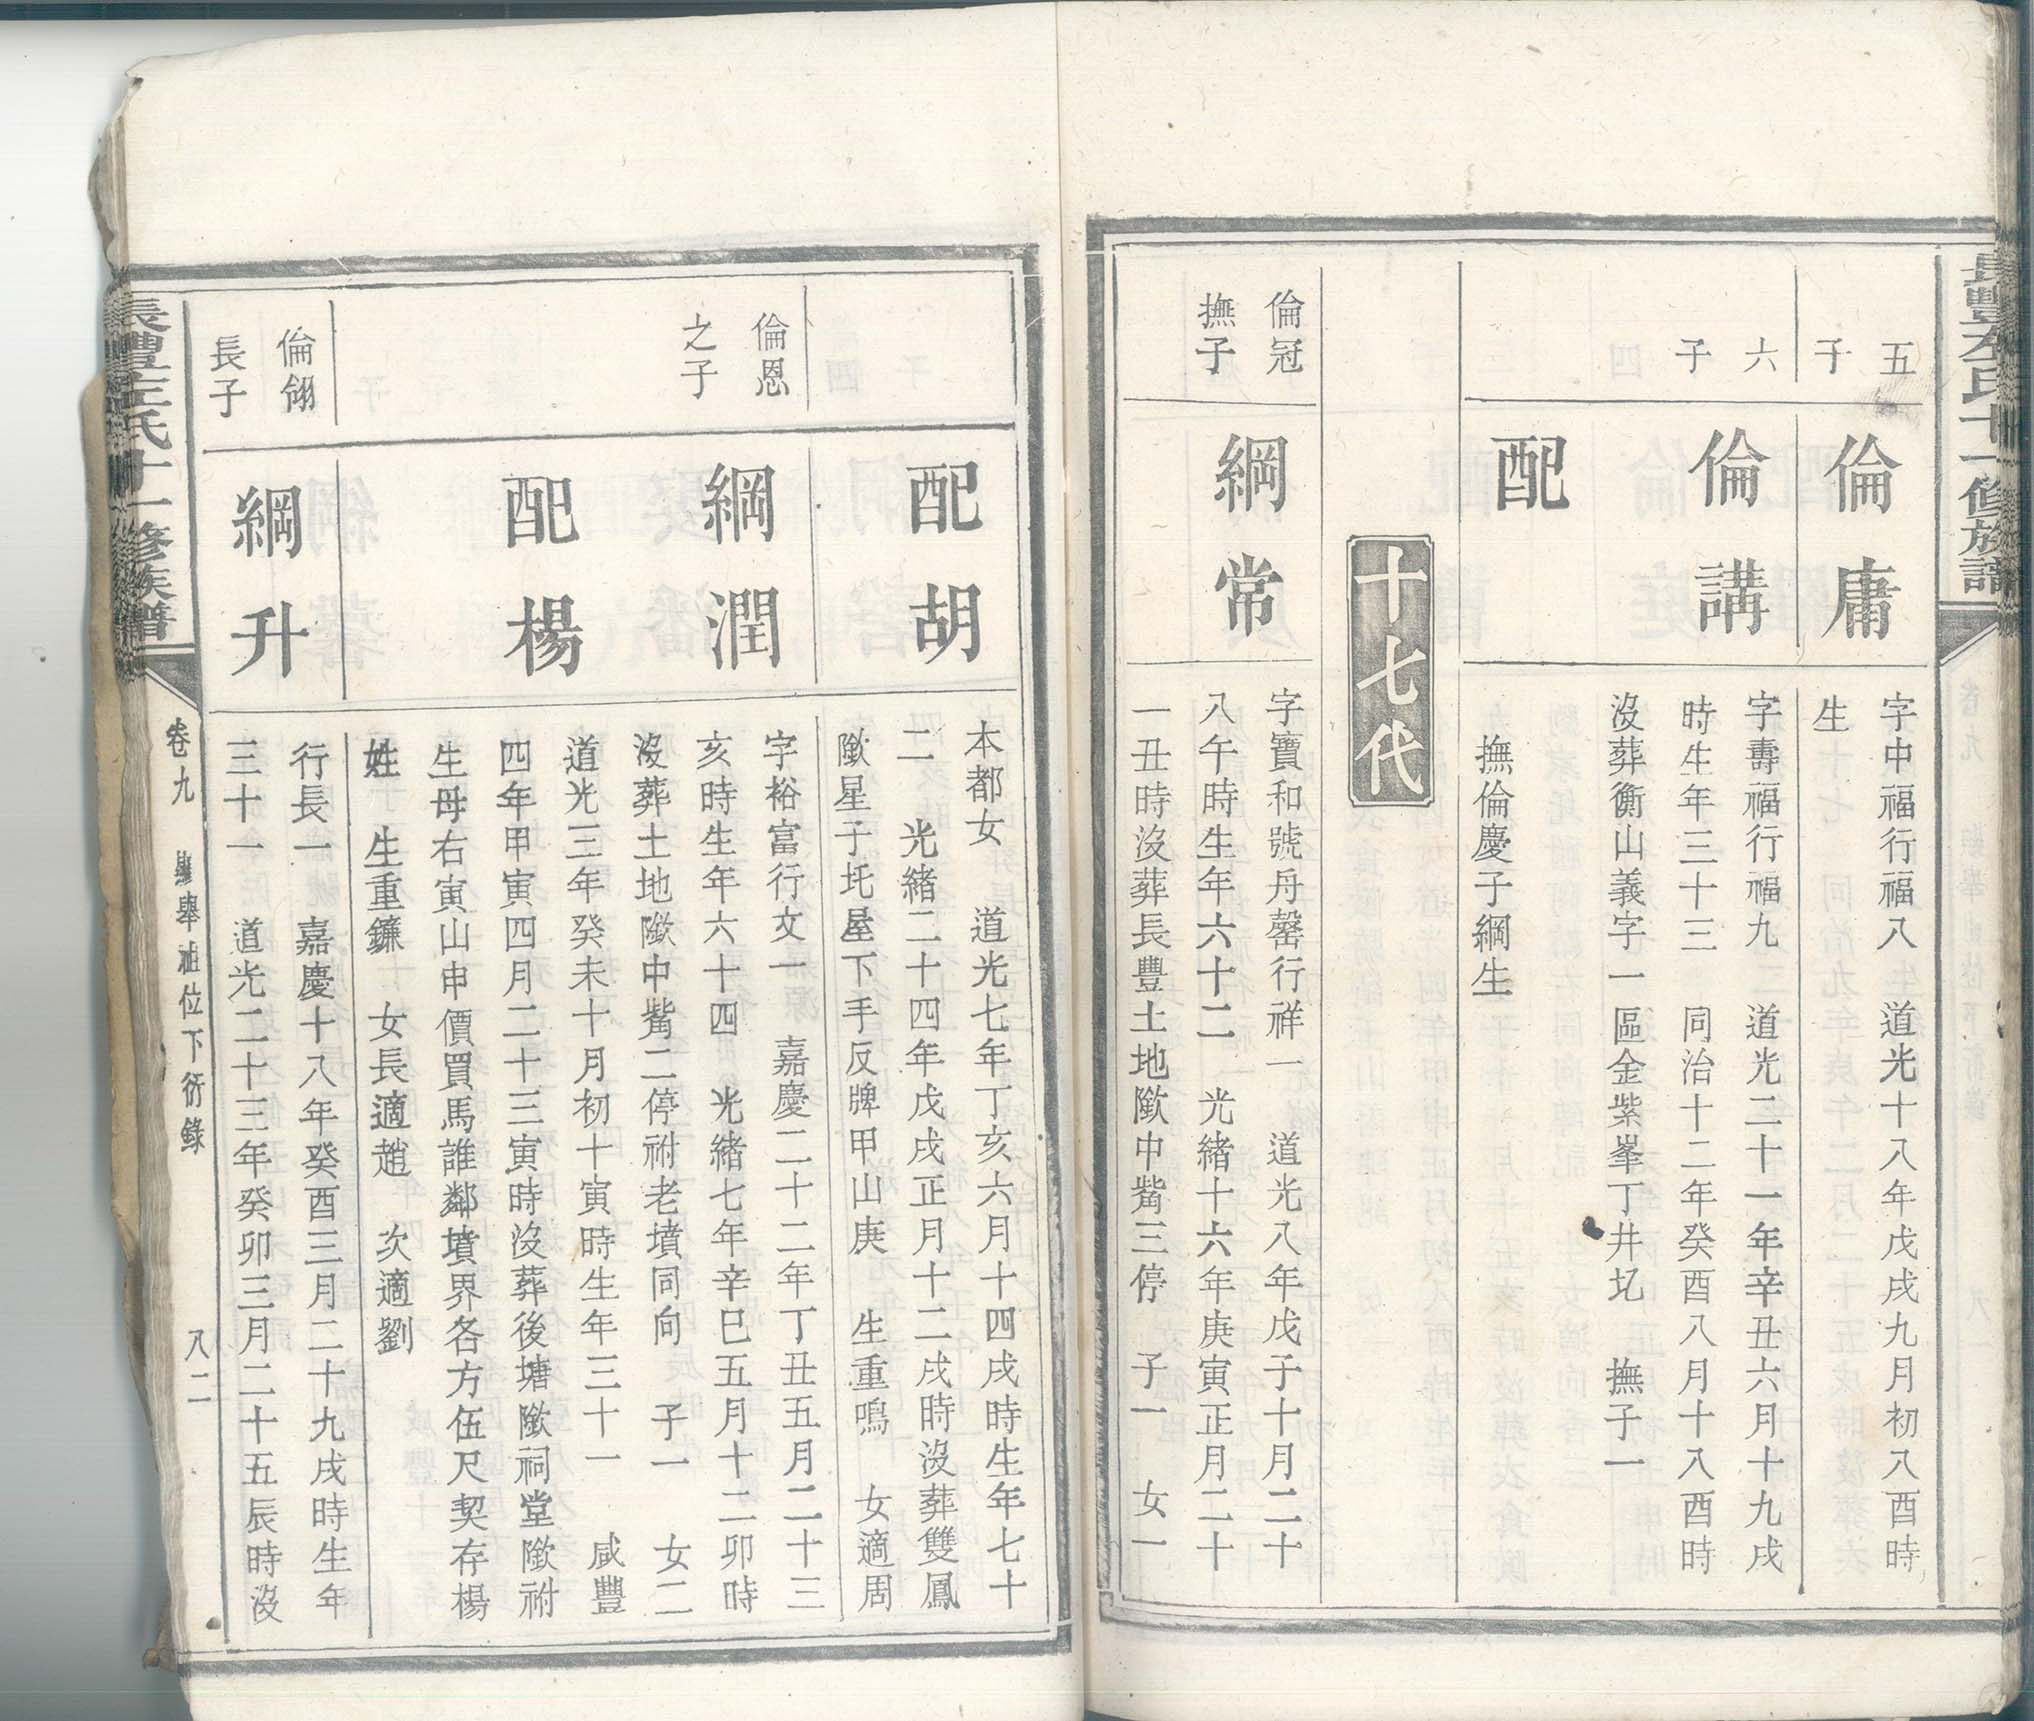 長豐左氏十一修族譜
五
子
倫庸
字中福行福八　道光十八年戊戌九月初八酉時
生
六
子
倫講
字壽福行福九　道光二十一年辛丑六月十九戌
時生年三十三　同治十二年癸酉八月十八酉時
沒葬衡山義字一區金紫峯丁井圠　撫子一
配
撫倫慶子綱生
十七代
倫冠
撫子
綱常
字寶和號舟罄行祥一　道光八年戊子十月二十
八午時生年六十二　光緒十六年庚寅正月二十
一丑時沒葬長豐土地歘中觜三停　子一　女一
配胡
本都女　道光七年丁亥六月十四戌時生年七十
二　光緒二十四年戊戌正月十二戌時沒葬雙鳳
歘星子圫屋下手反牌甲山庚　生重鳴　女適周
倫恩
之子
綱潤
字裕富行文一　嘉慶二十二年丁丑五月二十三
亥時生年六十四　光緒七年辛巳五月十二卯時
沒葬土地歘中觜二停祔老墳同向　子一　女二
配楊
道光三年癸未十月初十寅時生年三十一　咸豐
四年甲寅四月二十三寅時沒葬後塘歘祠堂歘祔
生母右寅山申價買馬誰鄰墳界各方伍尺契存楊
姓　生重鐮　女長適趙　次適劉
倫翎
長子
綱升
行長一　嘉慶十八年癸酉三月二十九戌時生年
三十一　道光二十三年癸卯三月二十五辰時沒
長豐左氏十一修族譜
卷九　舉祖位下衍錄
八二